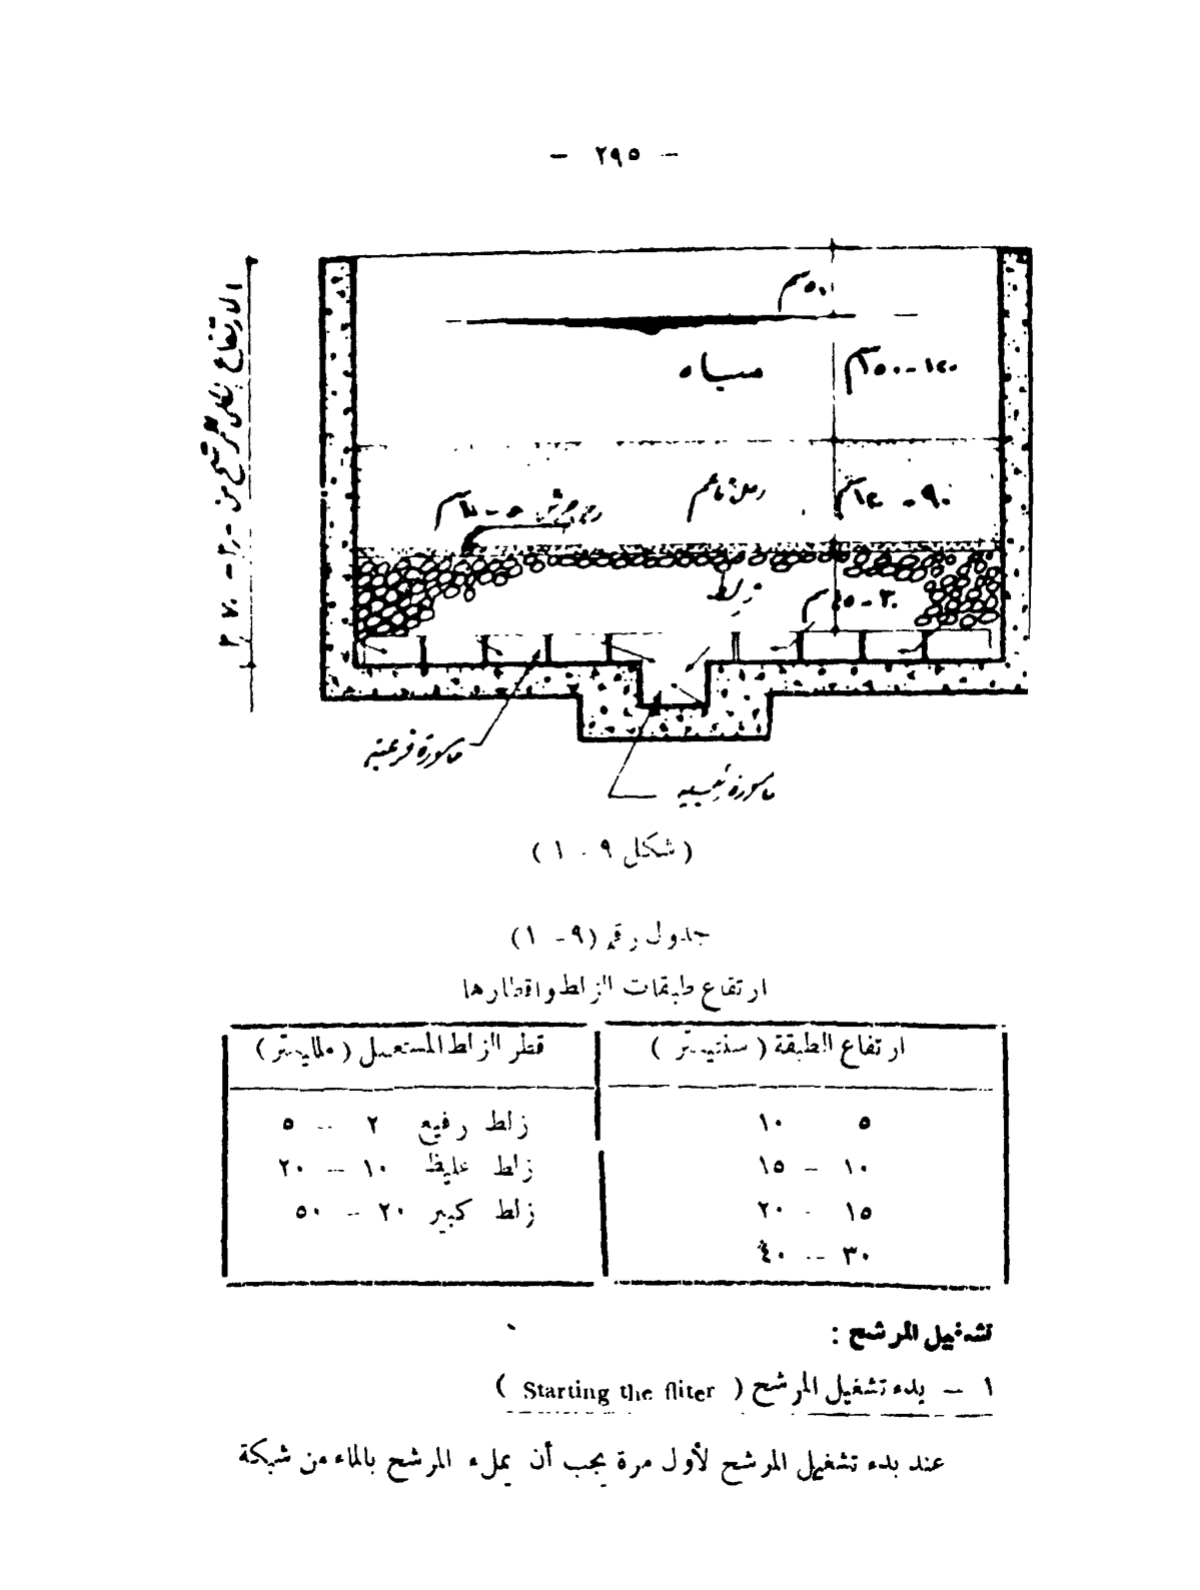 - ٢٩٥ -
٥٠ سم
مياه
١٢٠ - ١٥٠ سم
رمل ناعم
٩٠ - ١٢٠ سم
زلط
٣٠ - ٤٥ سم
ماسورة فرعية
ماسورة رئيسية
( شكل ٩ - ١ )
جدول رقم (٩ - ١ )
ارتفاع طبقات الزلط واقطارها
ارتفاع الطبقة ( سنتيمتر ) قطر الزلط المستعمل ( ملليمتر )
٥ ١٠ زلط رفيع ٢ - ٥
١٠ - ١٥ زلط غليظ ١٠ - ٢٠
١٥ - ٢٠ زلط كبير ٢٠ - ٥٠
٣٠ - ٤٠
تشغيل المرشح :
١ - بدء تشغيل المرشح ( Starting the fliter )
عند بدء تشغيل المرشح لأول مرة يجب أن يملء المرشح بالماء من شبكة